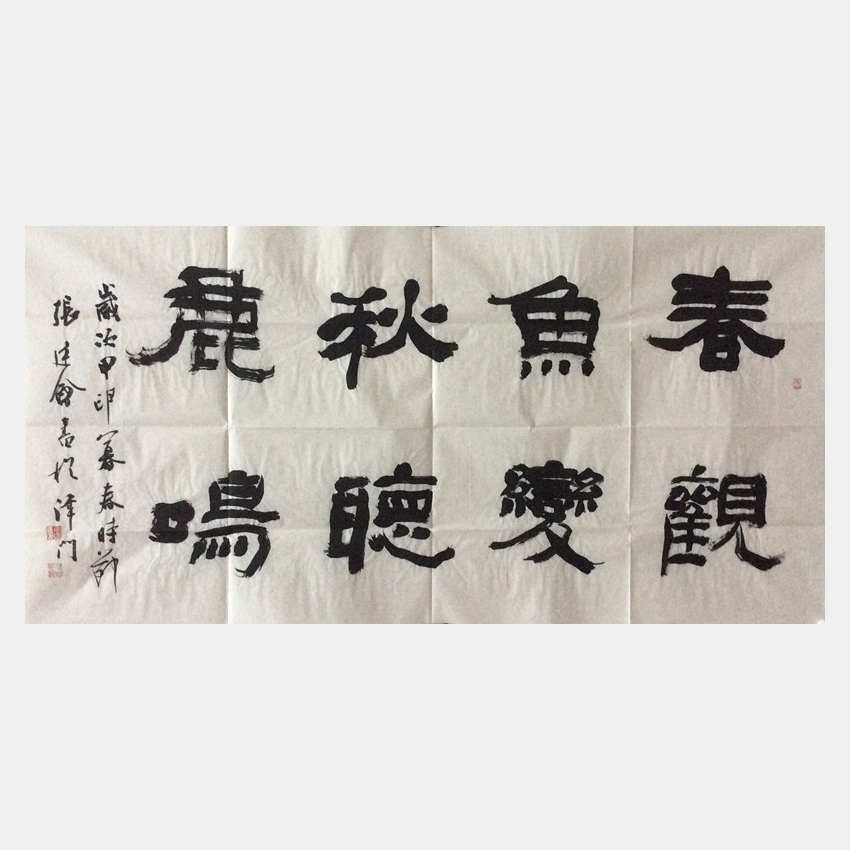 春觀
魚變
秋聽
鹿鳴
歲次甲暮春時節
張書於津門